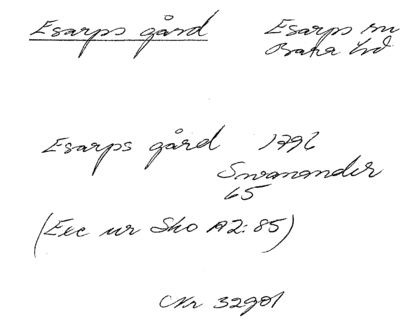 Esarps gård
Esarps sn
Bara hd
Esarps gård 1796
Svanander
65
(Exc ur Sko A2:85)
Nr 32901